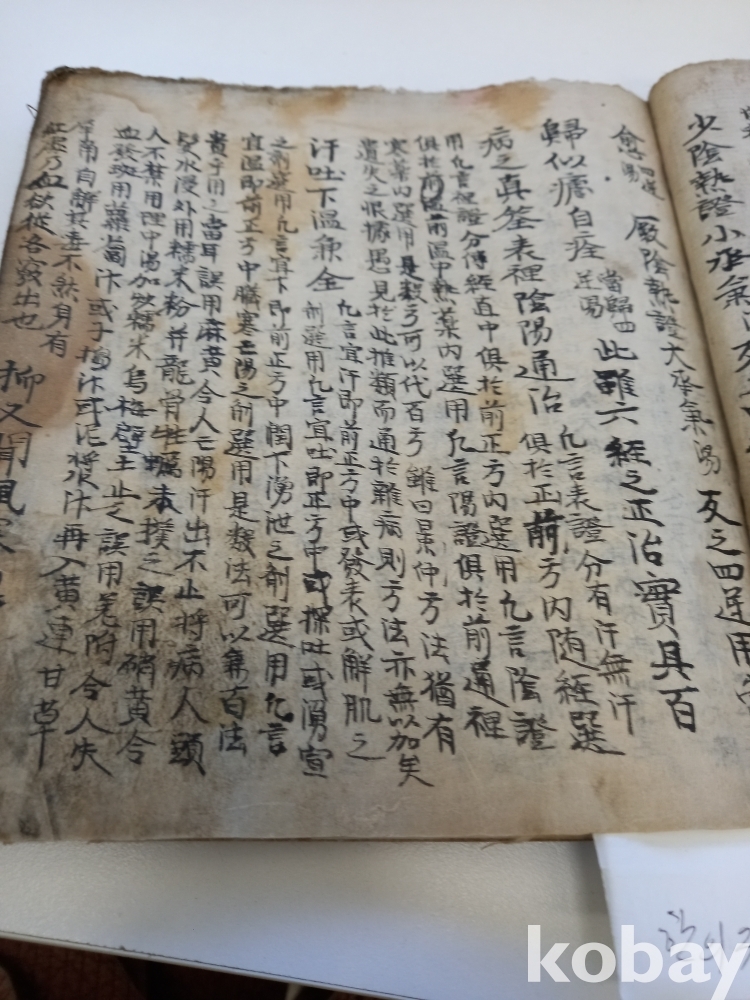 少陰熱證小承氣
厥陰熱證大承氣湯 反之四逆用
歸似瘧自痊 當歸四逆湯 此雖六經之正治實具百
病之真筌表裡陰陽通治 凡言表證分有汗無汗
俱於正前方內隨經選
用凡言裡證分傳經直中俱於前正方內選用凡言陰證
俱於前溫中熱藥內選用凡言陽證俱於前通裡
寒藥內選用是數方可以代百方雖曰景仲方法猶有
遺失之恨據愚見於此推類而通於雜病則方法亦無以加矣
汗吐下溫兼全 凡言宜汗即前正方中或發表或解肌之
劑選用凡言宜吐即正方中或探吐或湧宣
之劑選用凡言宜下即前正方中潤下湧泄之劑選用凡言
宜溫即前正方中臟寒亡陽之劑選用是數法可以兼百法
貴于用之當耳誤用麻黃令人亡陽汗出不止將病人頭
髮水浸外用糯米粉并龍骨牡蠣末撲之誤用硝黃令
人不禁用理中湯加炒糯米烏梅壁土止之誤用羌附令人失
血發斑用蘿蔔汁或子搗汁或泥漿汁再入黃連甘草
自解其毒不然身有
血欲從各竅出也 抑又聞風寒
kobay